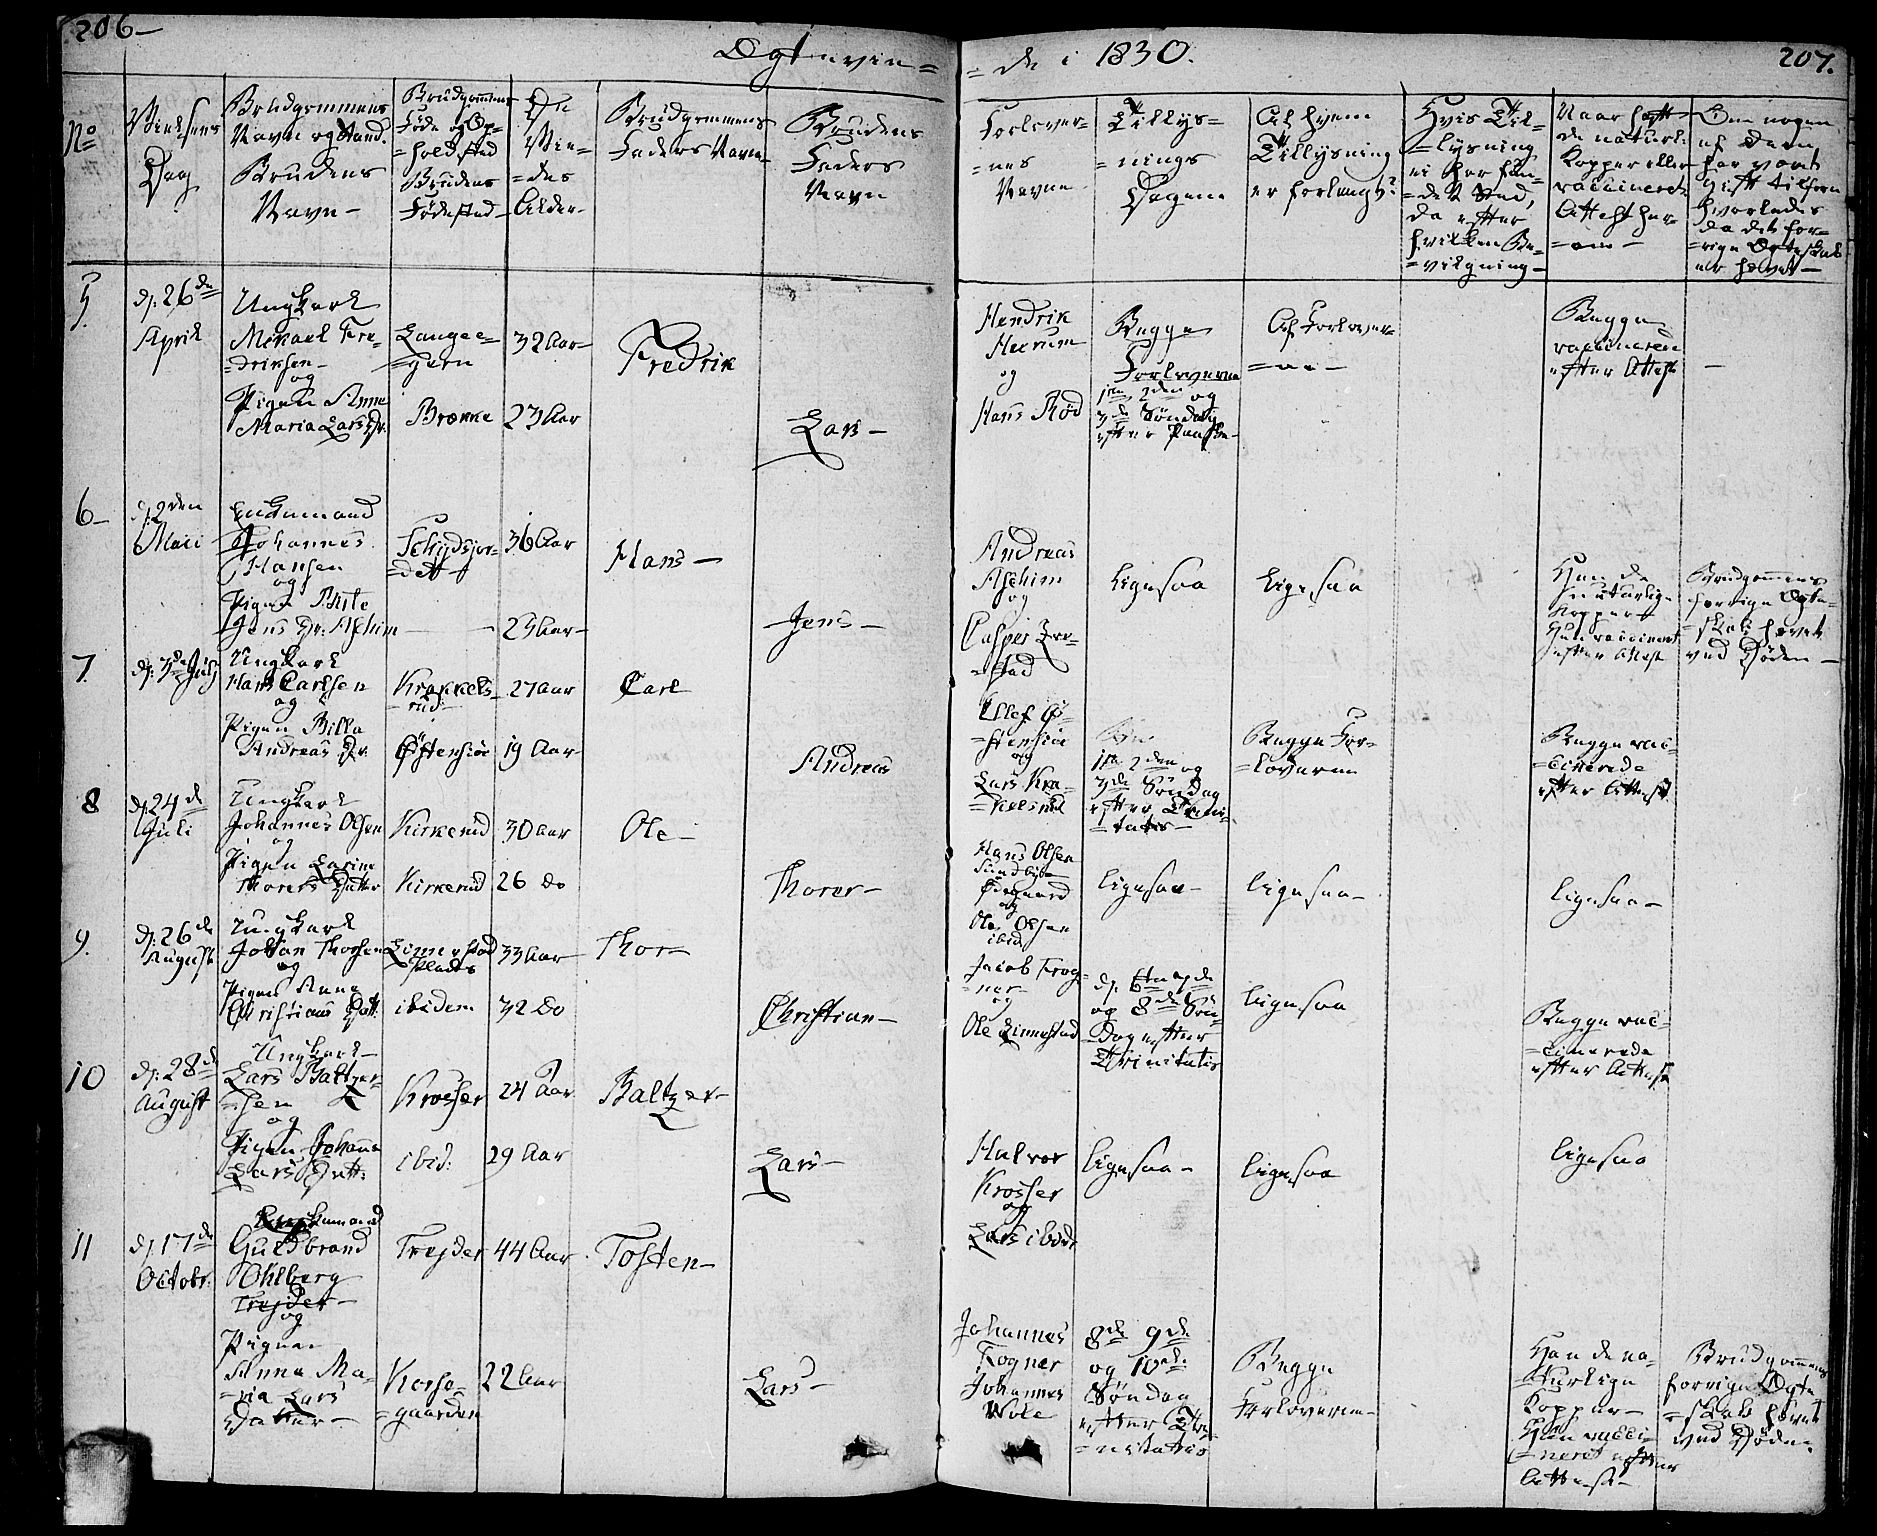 206-
Ægtevie=
=de i 1830.
207.
No
Vielsens
Dag
Brudgommens
Navn og Stand.
Brudens
Navn-
Brudgommens
Føde og Op=
=holdsted
Brudens
Fødested-
De
Vie=
=des
Alder-
Brudgommens
Faders Navn-
Brudens
Faders
Navn
Forlover-
=nes
Navne
Tillys=
=nings
Dagene
Af hvem
Tillysning
er forlangt?
Hvis Til=
=lysning
ei har fun=
=det Sted,
da efter
hvilken Be=
=vilgning-
Naar havt
de naturl:
Kopper eller
vaccinerede
Attest her=
=om-
Om nogen
af dem
har vært
gift tilforn
hvorledes
da det for=
=rige Ægteskab
er hævet-
5.
d: 26de
April
Ungkarl
Mikael Fre=
=driksen-
og
Pigen Anne
Maria Lars Dr.
Langee=
=gern
Brønne
32 Aar-
23 Aar
Fredrik
Lars-
Hendrik
Heerum
og
Hans Rød
Begge
Forloverne
1ste, 2den og
3de Søndag
efter Paaske-
Af Forlover=
=ne-
Begge
vaccinerede
efter Attest
-
6-
d: 2den
Maii
Enkemand
Johannes
Hansen
og
Pigen Birte
Jens Dr: Aschim
Schydsjor=
=det
36 Aar
23 Aar-
Hans-
Jens-
Andreas
Aschim
og
Casper
=stad
ligesaa
ligesaa
Han de
naturlige
Kopper
Hun vaccineret
efter Attest
Brudgommens
forrige Ægte=
=skab hævet
ved Døden-
7.
d: 3de July
Ungkarl
Hans Carlsen
og
Pigen Bille
Andreas Dr.
Krokkels=
rud-
Østensiøe
27 Aar
19 Aar-
Carl
Andreas
Ellef Ø=
=stensiøe
og
Lars Kra=
=kelsrud
1ste 2den og
3de Søndag
efter Trini=
=tatis-
Begge For=
=loverne
Begge vac=
=cinerede
efter Attest.
8
d: 24de
Juli
Ungkarl
Johannes Olsen
og
Pigen Larine
Thorers Datter
Kirkerud
Kirkerud
30 Aar
26 do
Ole-
Thorer-
Hans Olsen
Sundbye
Ødegaard
og
Ole Olsen
ibid
ligesaa-
ligesaa-
ligesaa-
9.
d: 26de
August
Ungkarl
Johan Thorsen
og
Pigen Anne
Christians Datt:
Linnestad
Plads
ibidem
33 Aar
32 Do
Thor-
Christian-
Jacob Frog=
=ner-
og
Ole Linnestad
d: 6te 7de
og 8de Søn=
=Dag efter
Trinitatis
ligesaa
Begge vac=
=cinerede
efter Attest
10
d: 28de
August
Ungkarl-
Lars Baltzer=
=sen
og
Pigen Johanne
Lars Datt:
Krosser
ibid:
24 Aar
29 Aar
Baltzer-
Lars-
Halvor
Krosser
og
Lars ibid:
ligesaa-
ligesaa
ligesaa
11
d: 17de
Octobr.
Enkemand
Guldbrand
Ohlberg
Trejder-
og
Pigen
Anna Ma=
=ria Lars
Datter-
Trejder
Korse=
=gaarden
44 Aar
22 Aar
Tosten-
Lars-
Johannes
Fogner
Johannes
Wole
8de 9de
og 10de
Søndag
efter Tri=
=nitatis
Begge
Forloverne-
Han de na=
=turlige
Kopper-
Hun vacci=
=neret efter
Attest-
Brudgommens
forrige Ægte
=skab hævet
ved Døden.